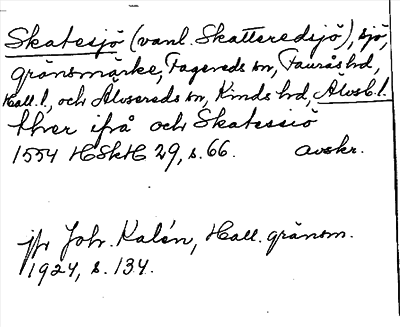 Skatesjö (vanl. Skatteredsjö), sjö,
gränsmärke, Fagereds sn, Faurås hd,
Hall. l., och Älvsereds sn, Kinds hd, Älvsb. l.
thver ifrå och Skatessiö
1554 HSkH 29, s. 66. avskr.
jfr Joh. Kalén, Hall. gränsm.
1924, s. 134.